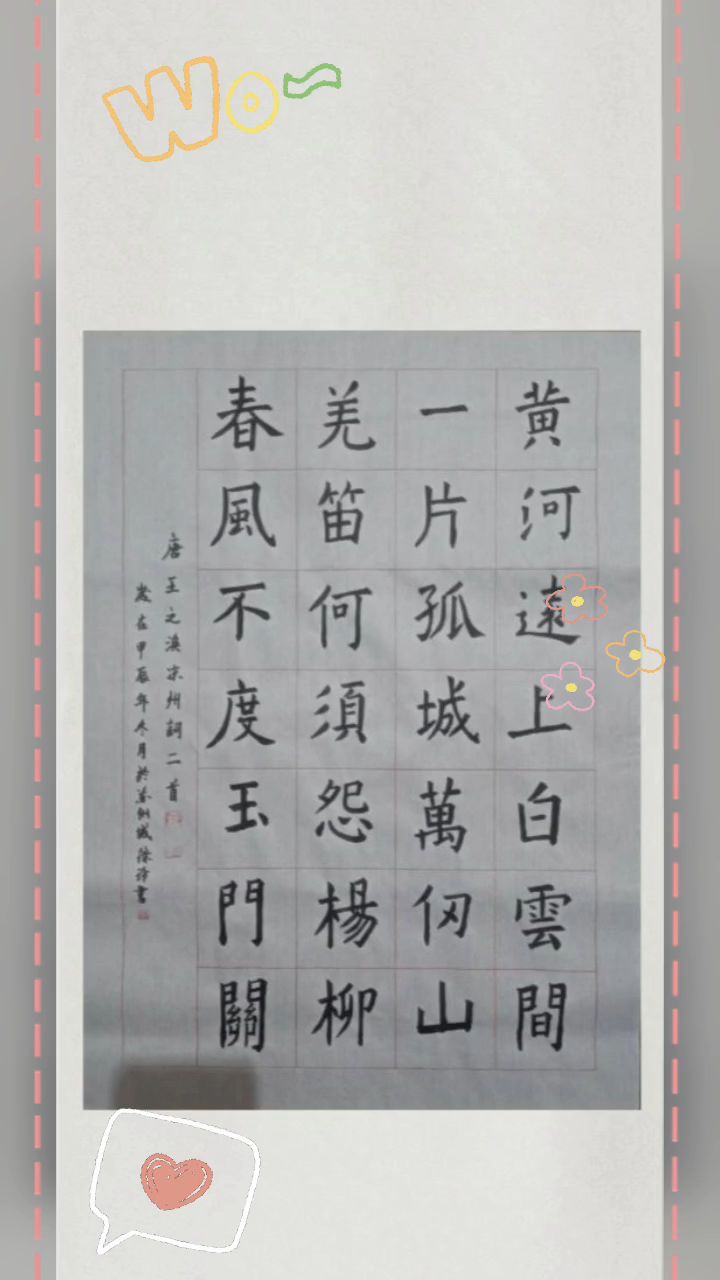 黄河遠上白雲間
一片孤城萬仞山
羌笛何須怨楊柳
春風不度玉門關
唐王之渙涼州詞二首
歲在甲辰年冬月於
書
Wo~